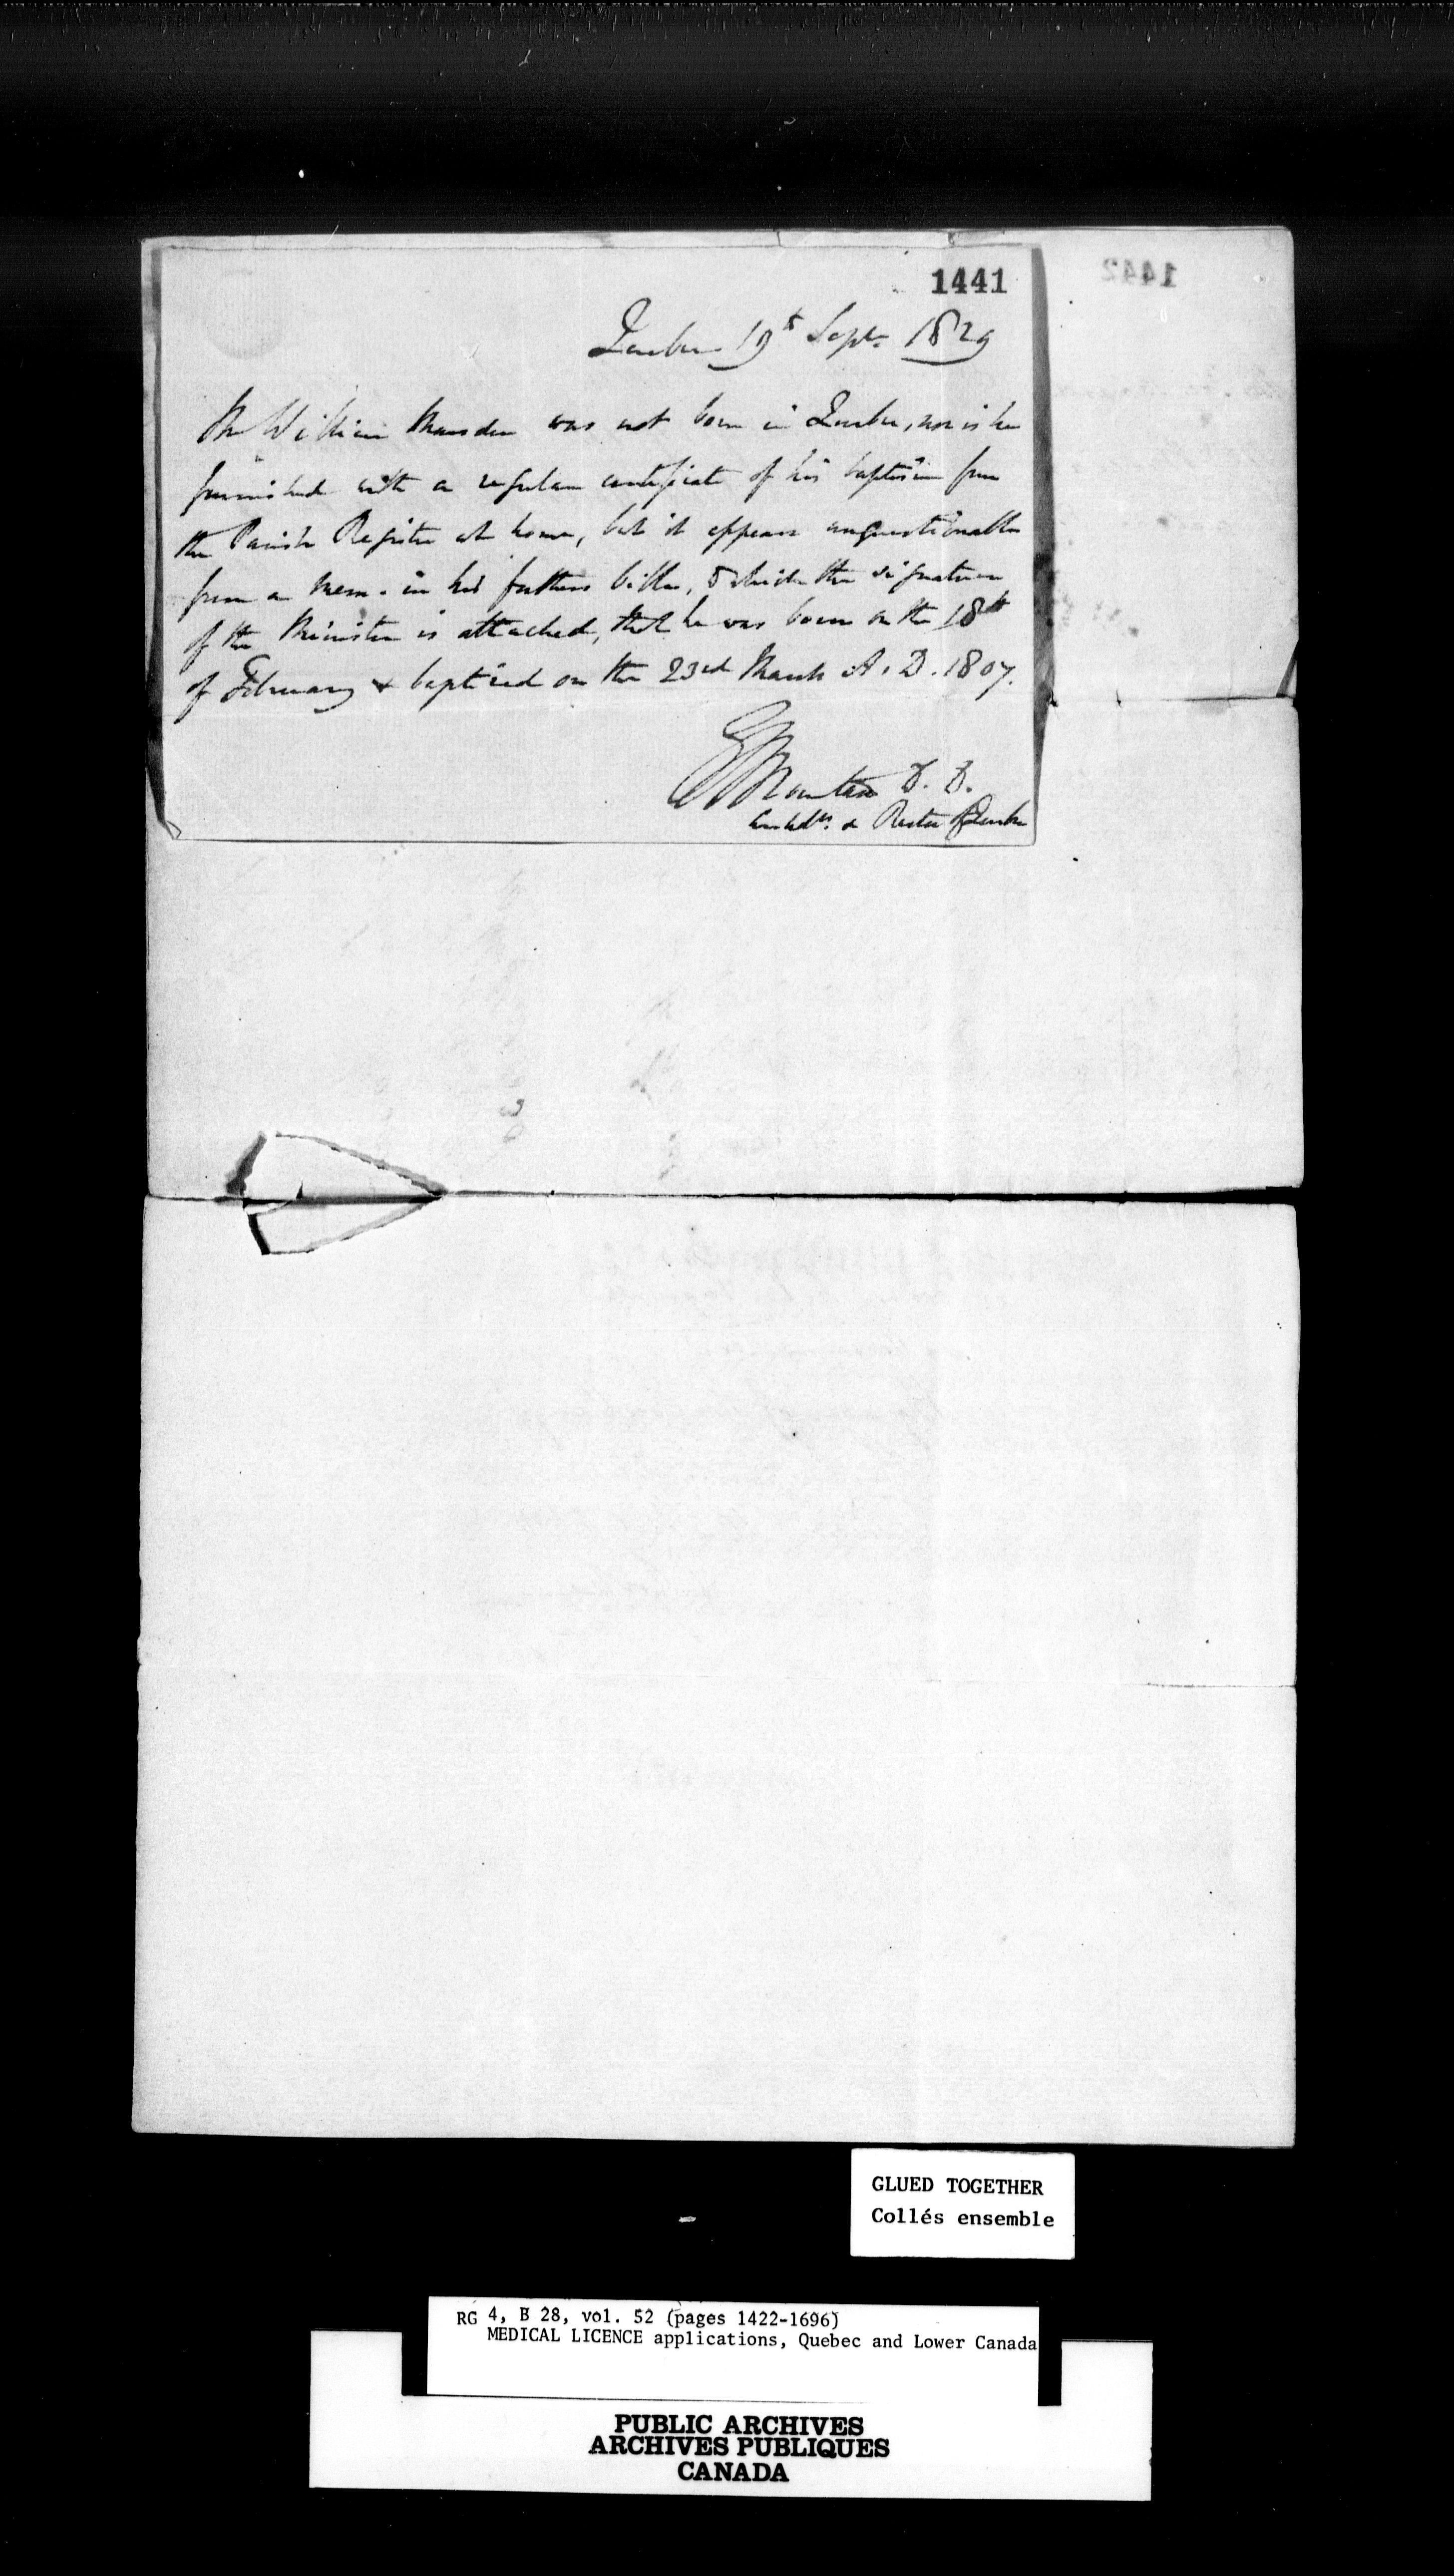 1441
1442
Quebec 19th Septr. 1829
Mr William Marsden was not born in Quebec, nor is he
furnished with a regular certificate of his baptism from
the Parish Register at home, but it appears unquestionable
from a Mem. in his fathers bible, to which the signature
of the Minister is attached, that he was born on the 18th
of February & baptized on the 23rd March A.D. 1807.
G J Mountain D.D.
Archdn. & Rector of Quebec
GLUED TOGETHER
Collés ensemble
RG 4, B 28, vol. 52 (pages 1422-1696)
MEDICAL LICENCE applications, Quebec and Lower Canada
PUBLIC ARCHIVES
ARCHIVES PUBLIQUES
CANADA